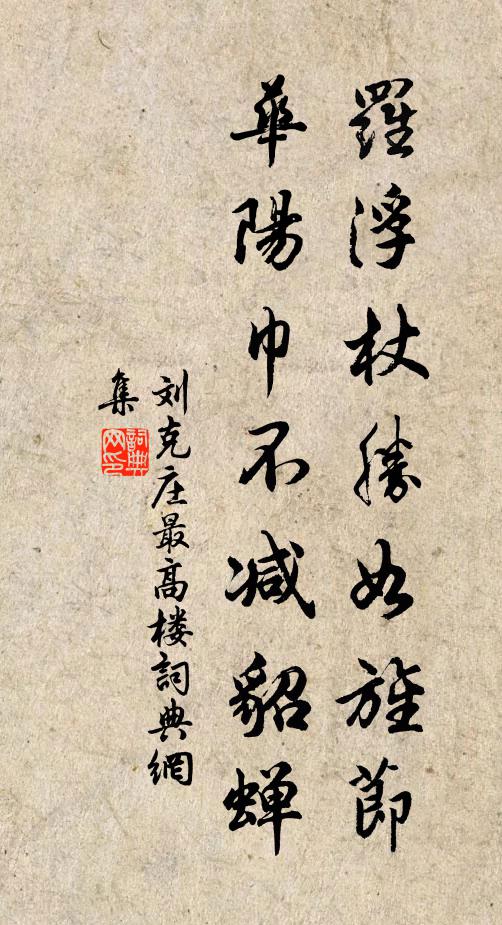 羅浮杖勝如旌節
華陽巾不减貂蝉
刘克庄最高楼詞典網
集
詞典网印